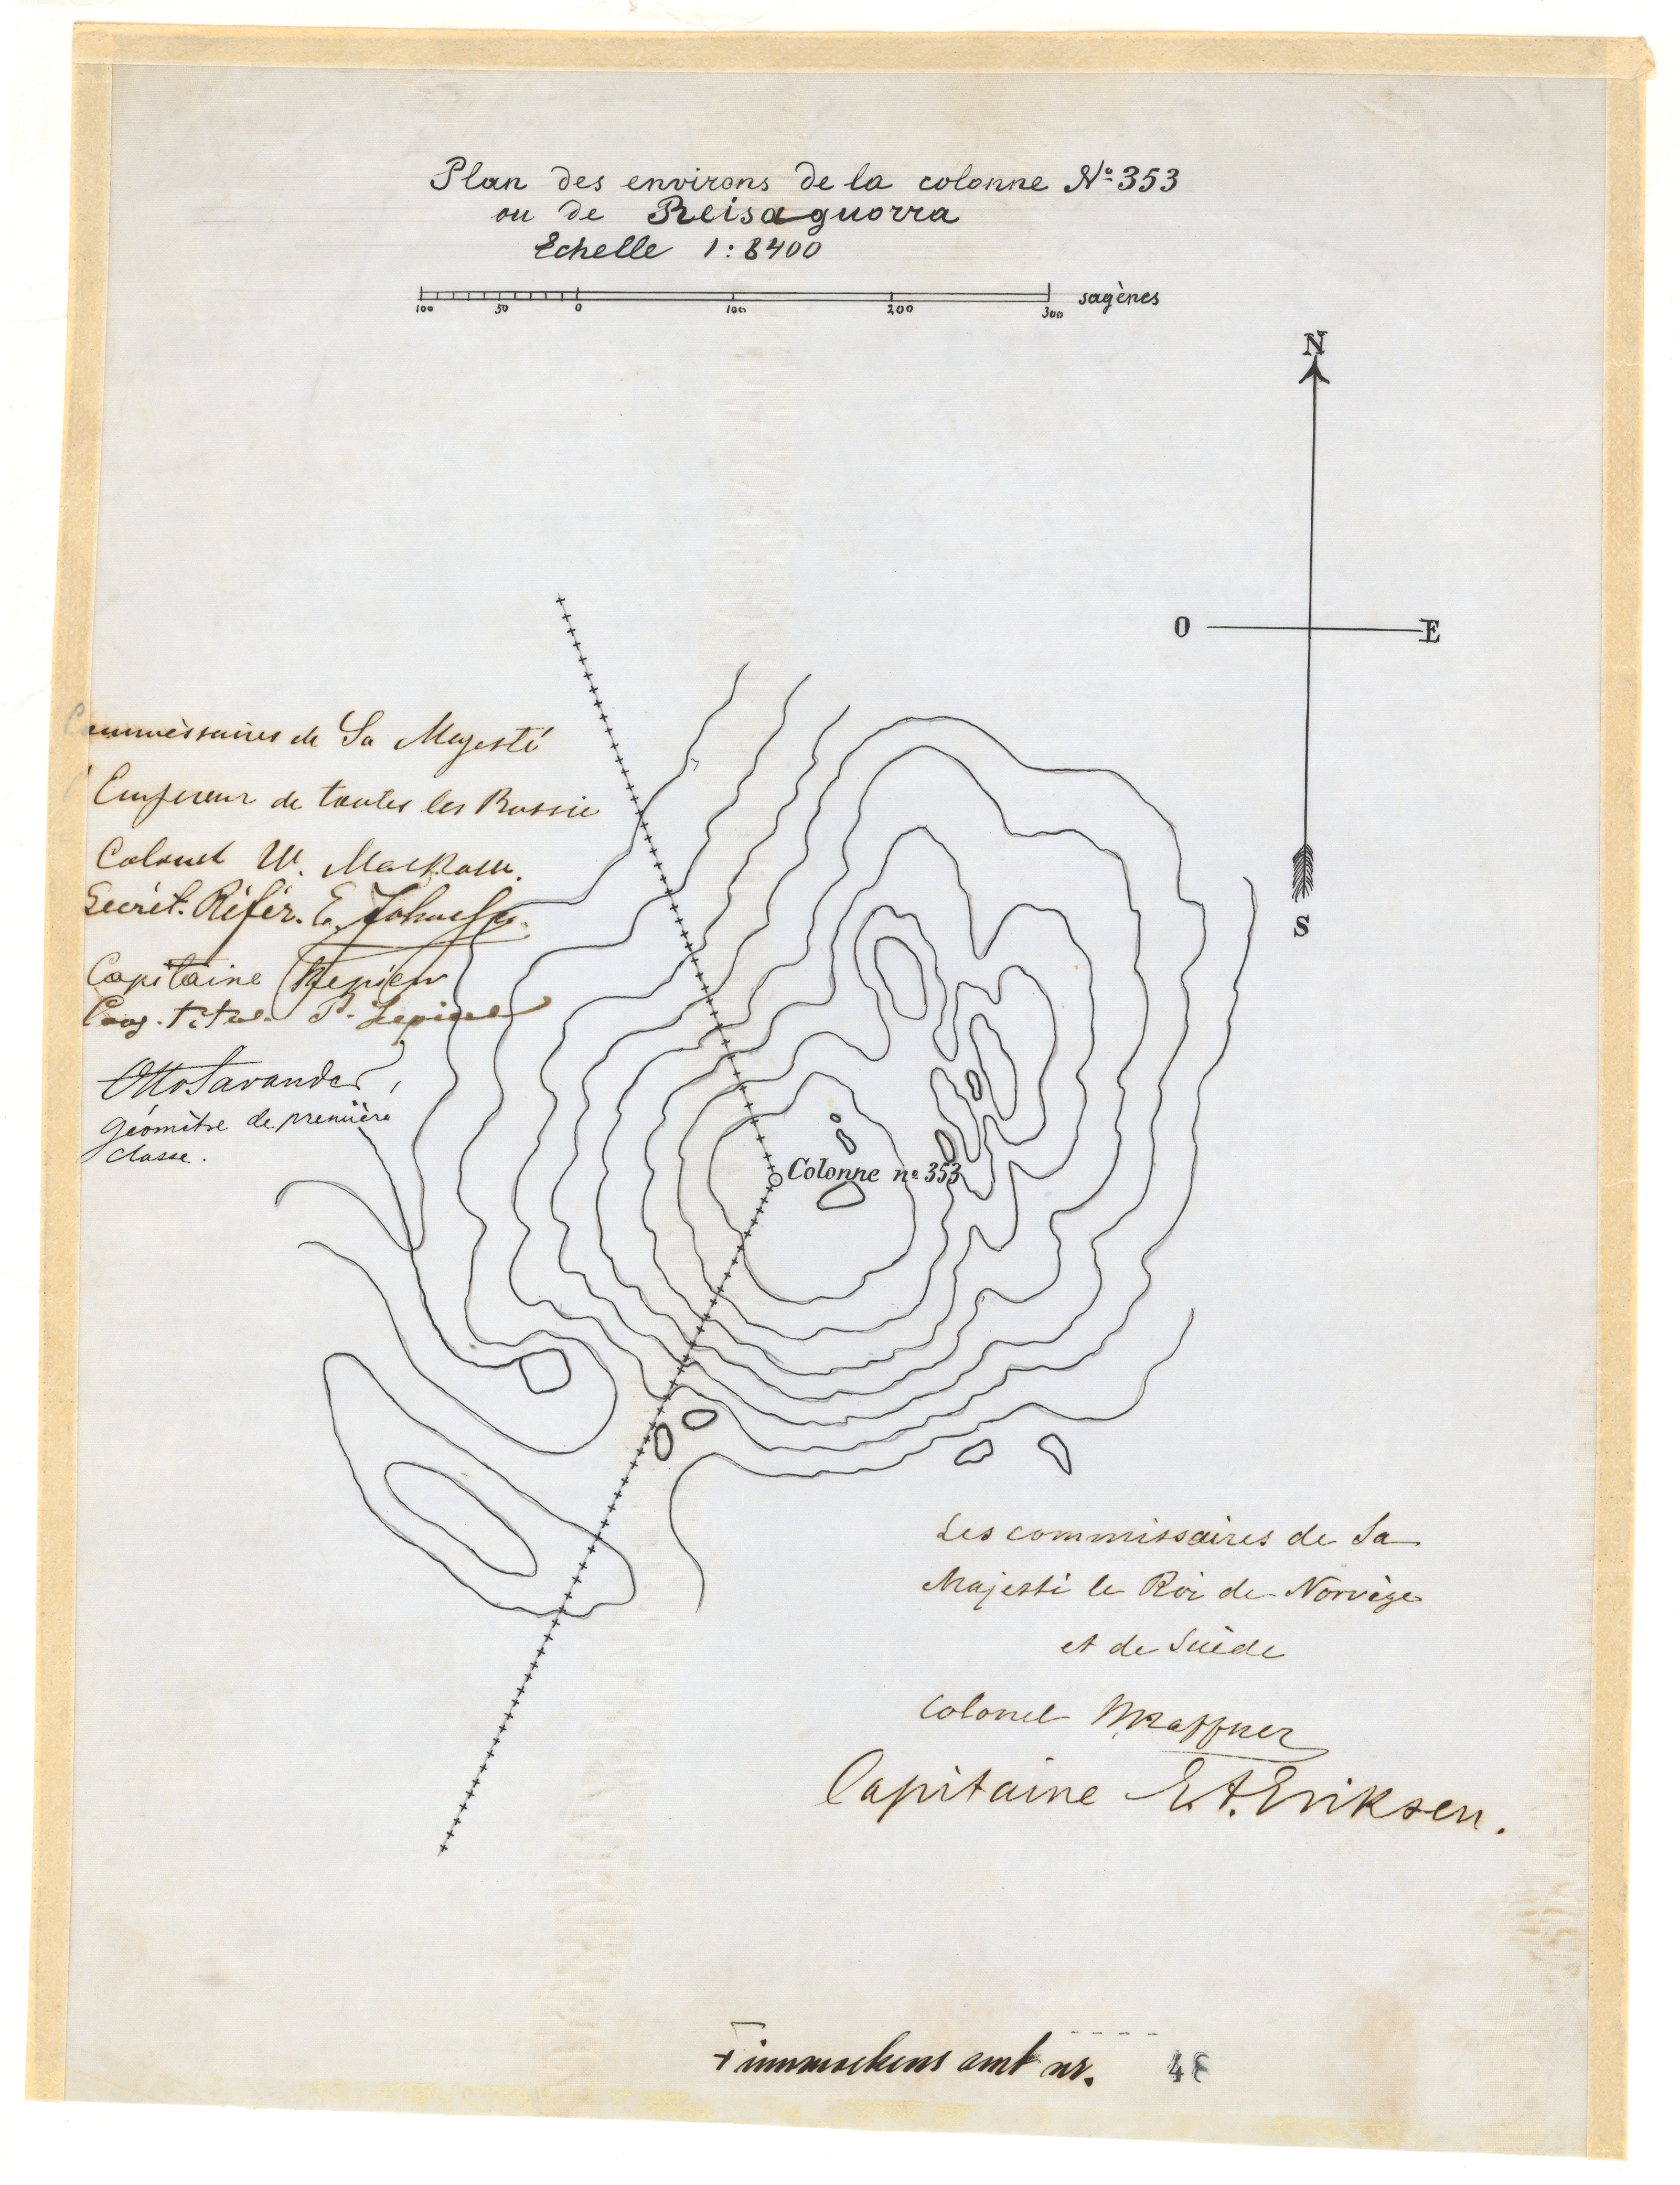 Plan des environs de la colonne No 353
ou de Reisaguorra
Echelle 1:8400
100 50 0 100 200 300 sagènes
N
O E
S
Commissaires de Sa Majesté
l'Empereur de toutes les Russie
Colonel W.
Secrét. Référ. E.
Capitaine
titul.
Otto Savander,
géomètre de première
classe.
Colonne no 353
Les commissaires de Sa
Majesté le Roi de Norvège
et de Suède
Colonel Haffner
Capitaine E.A. Eriksen.
Finmarkens amt nr. 48